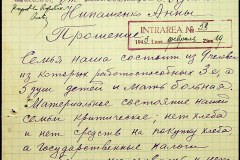 Нипашенко Анны
Прошение
INTRAREA № 58
Семья наша состоит из 9 человек
из которых работоспособных 3е, а
5 душ детей и мать больная
Материальное состояние нашей
семьи критическое; нет хлеба
и нет средств на покупку хлеба
а государственные налоги